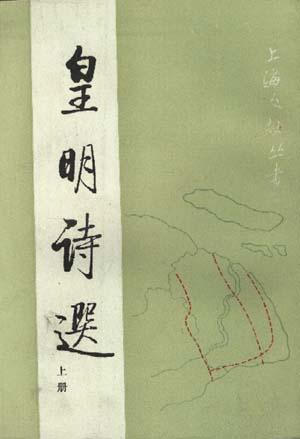 皇明诗選
上册
上海文献丛书